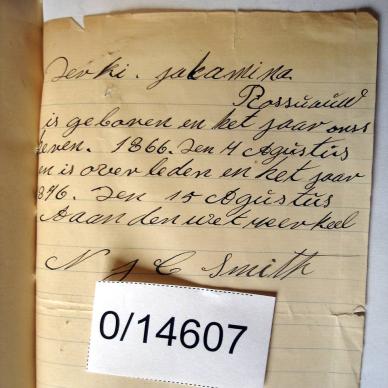 Derki. jakamina
Rossuauw
is geboren en het jaar onss
leven. 1866. Den 4 Agustus
en is over leden en het jaar
1896. Den 15 Agustus
Aaan den wet seer keel
N J C Smith
0/14607